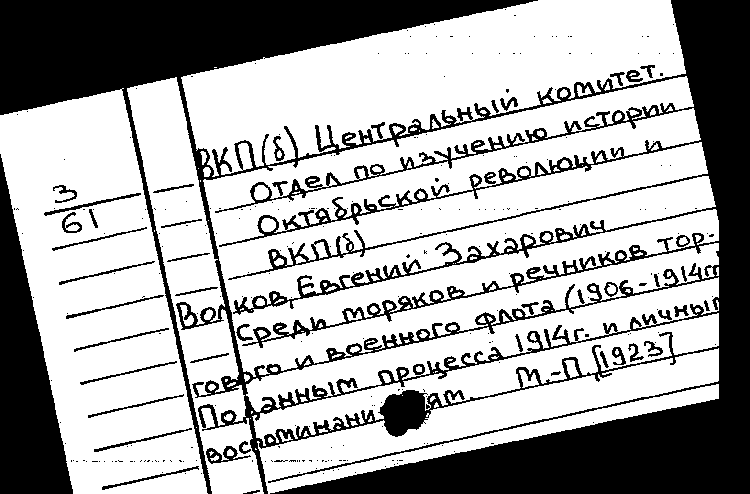 ВКП(б). Центральный комитет.
Отдел по изучению истории
Октябрьской революции и
ВКП(б)
3
61
Волков, Евгений Захарович
Среди моряков и речников тор-
гового и военного флота (1906-1914гг
По данным процесса 1914г. и личным
воспоминаниям. М.-П, [1923]